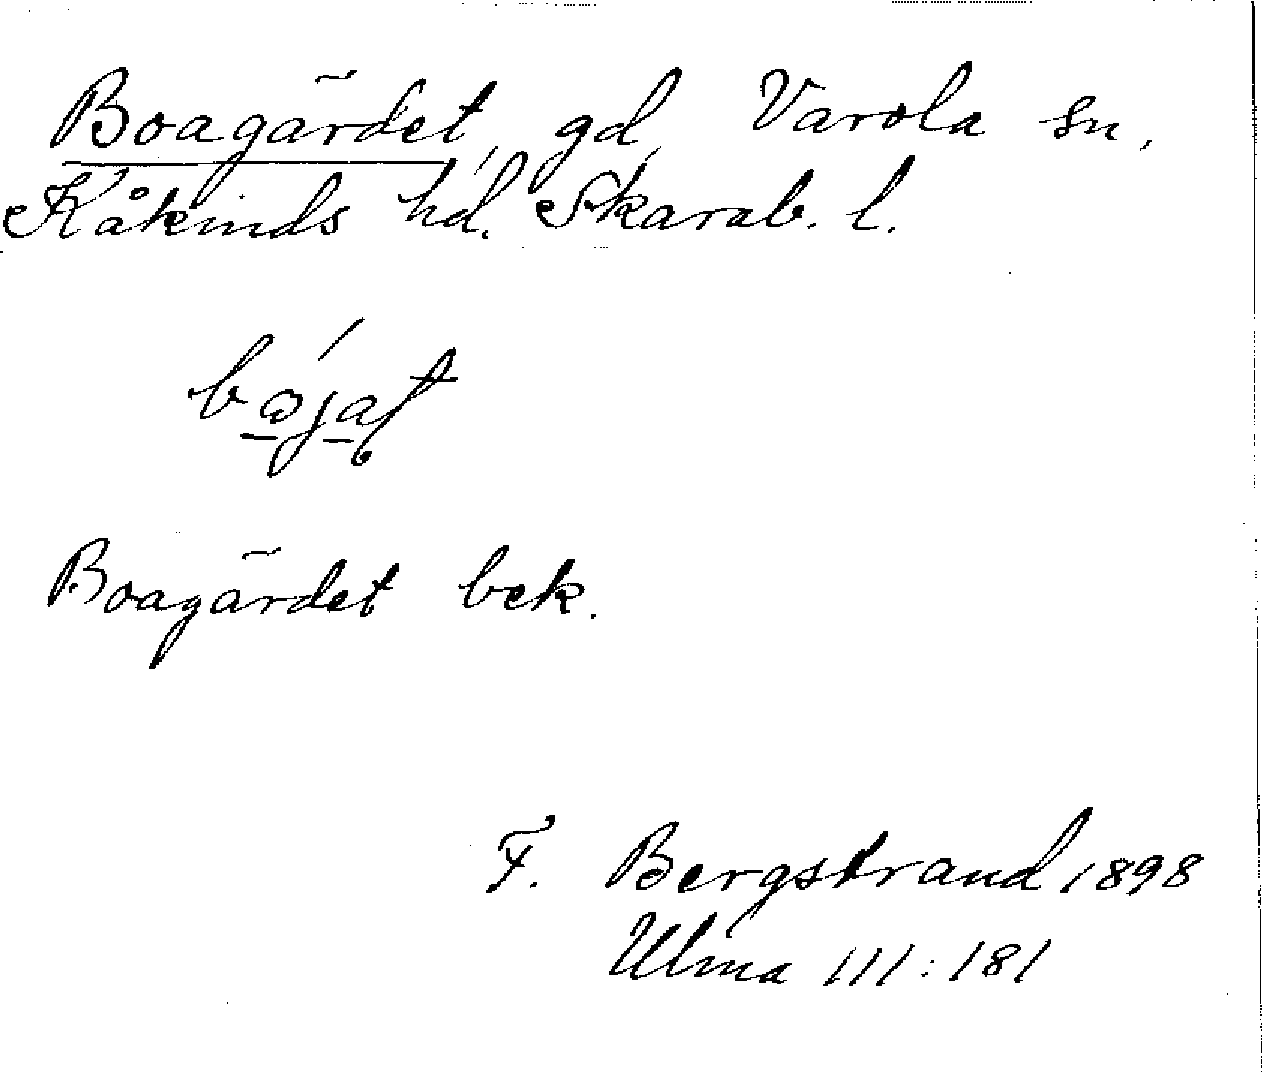 Boagärdet, gd, Varola sn,
Kåkinds hd. Skarab. l.
Boagärdet bek.
F. Bergstrand 1898
Ulma 111:181